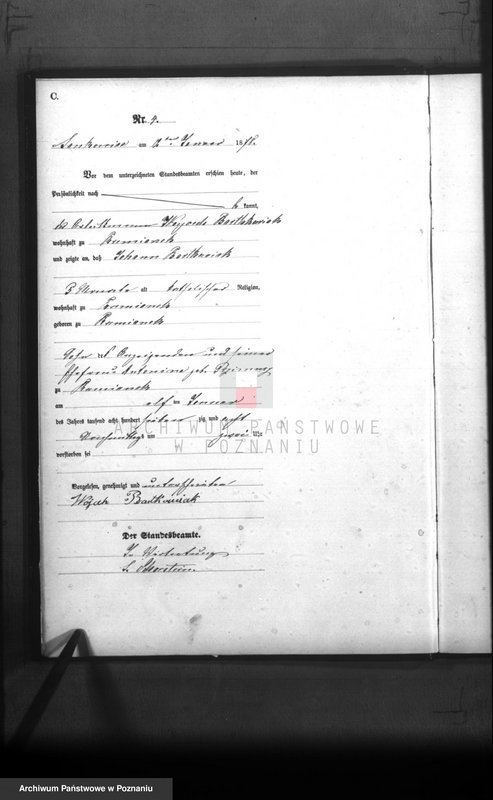 C.
Nr. 9.
am 2ten Januar 1878.
Vor dem unterzeichneten Standesbeamten erschien heute, der
Persönlichkeit nach
kannt,
Bartkowiak
wohnhaft zu Kamionek
und zeigte an, daß Johann Bartkowiak
3 Monate alt katholischer Religion,
wohnhaft zu Kamionek
geboren zu Kamionek
Sohn des Anzeigenden und seiner
Ehefrau Antonina geb.
zu Kamionek
am elf ten Januar
des Jahres tausend acht hundert sieben zig und acht
Nachmittags um zwei Uhr
verstorben sei
Vorgelesen, genehmigt und unterschrieben
Bartkowiak
Der Standesbeamte.
In Vertretung
ARCHIWUM PAŃSTWOWE
W POZNANIU
Archiwum Państwowe w Poznaniu